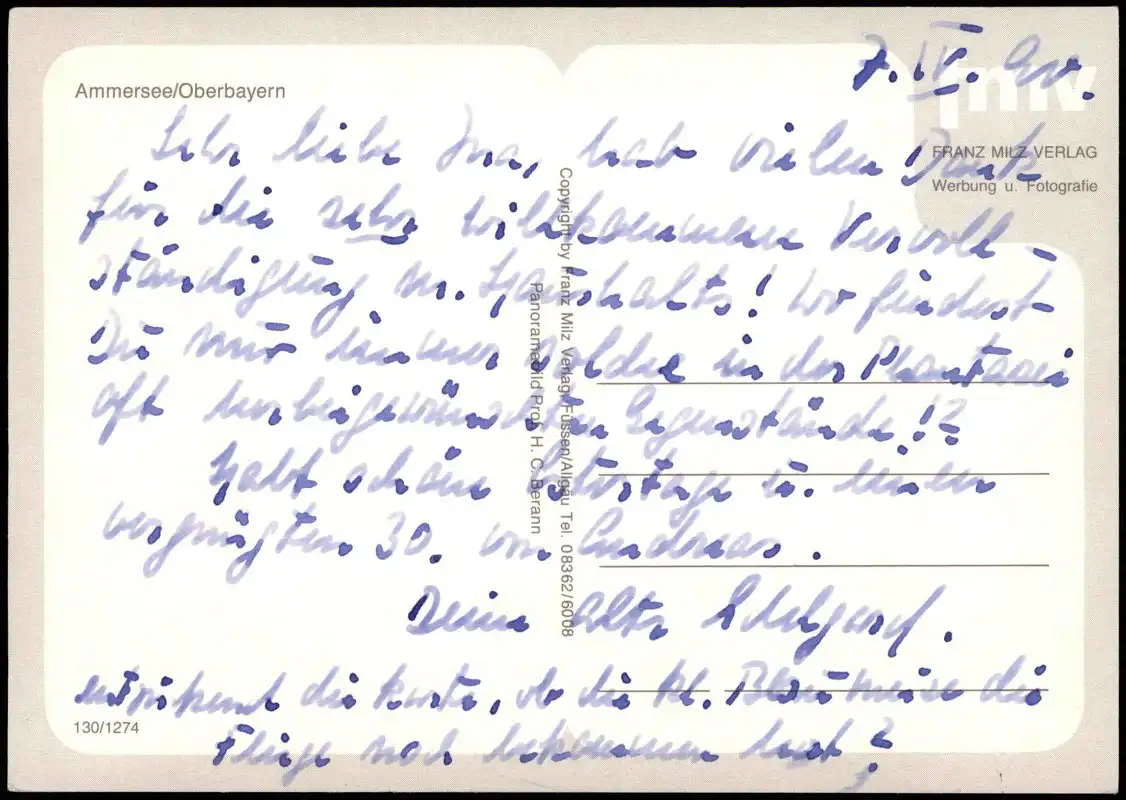 7. IV. 90.
Ammersee/Oberbayern
Sehr liebe Ina, hab vielen Dank
FRANZ MILZ VERLAG
Werbung u. Fotografie
für die sehr willkommenen Vervoll-
ständigung m. Haushalts! Wo findest
Du nur immer solche in der Phantasie
oft herbeigewünschten Gegenstände!?
Habt schöne Ostertage u. einen
vergnügten 30. von Andreas.
Deine alte Edelgard.
entzückend die Karte, ob die kl. Blaumeise die
Fliege noch bekommen hat?
130/1274
Copyright by Franz Milz Verlag, Füssen/Allgäu Tel. 08362/6008
Panoramabild Prof. H. C. Berann